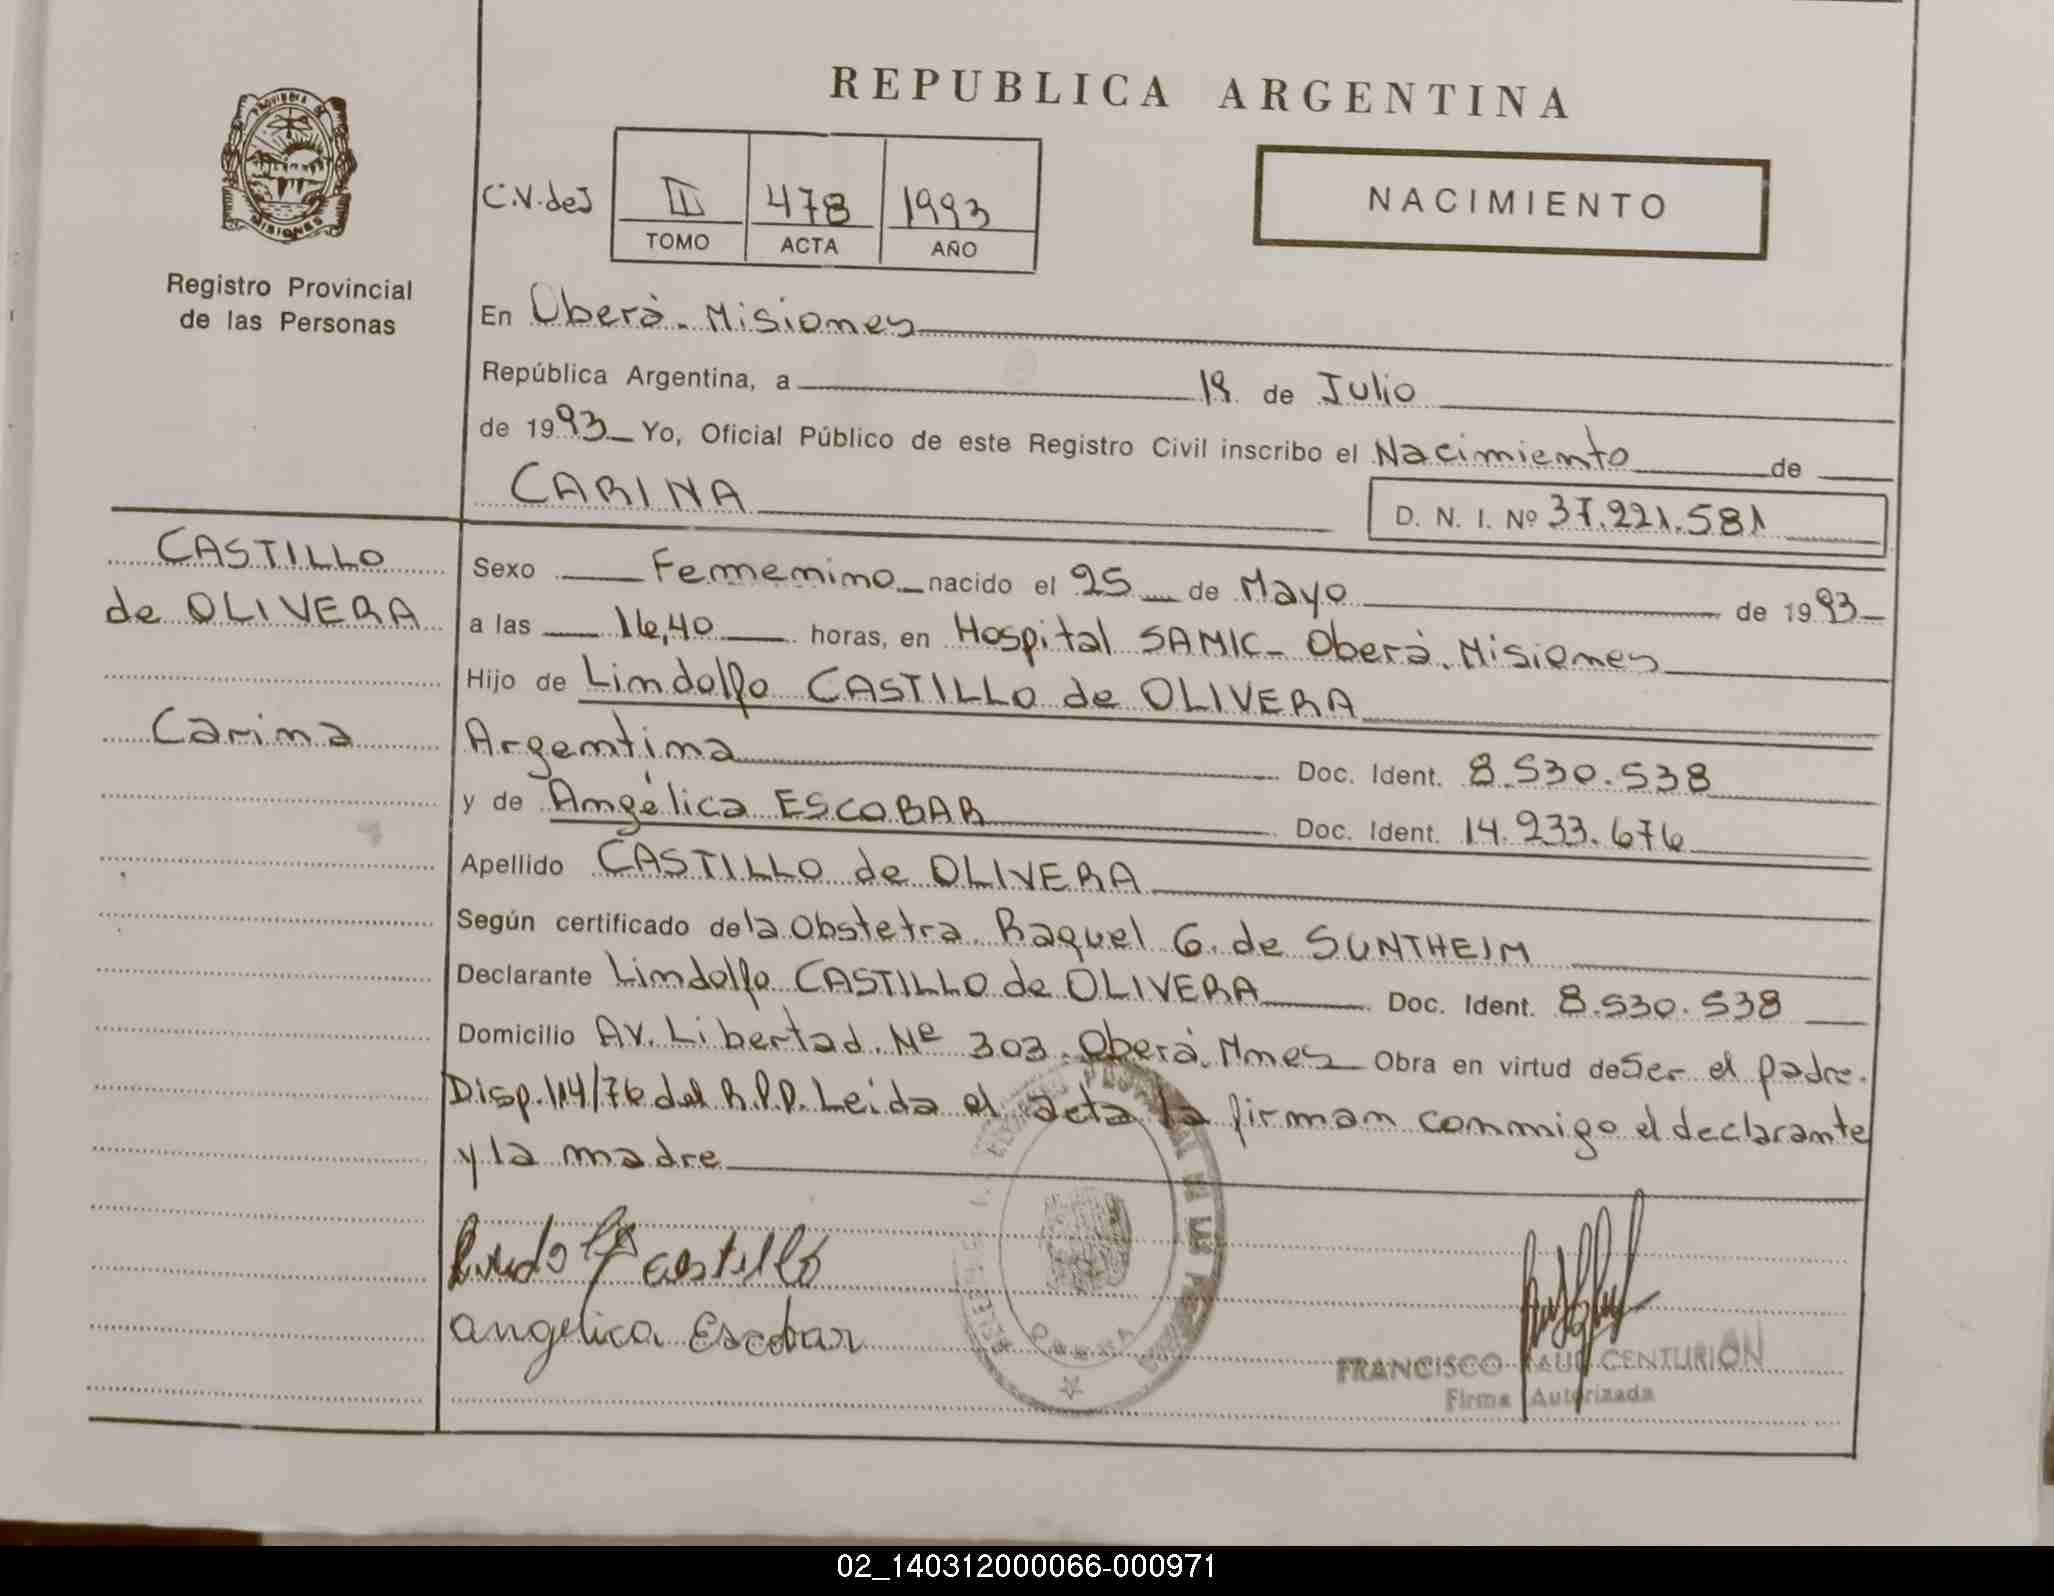 REPUBLICA ARGENTINA
PROVINCIA DE
MISIONES
Registro Provincial
de las Personas
C.V. de J
II 478 1993
TOMO ACTA AÑO
NACIMIENTO
En Oberà. Misiones
República Argentina, a 19 de Julio
de 1993 Yo, Oficial Público de este Registro Civil inscribo el Nacimiento de
CARINA D. N. I. Nº 37.221.581
CASTILLO
de OLIVERA
Carina
Sexo Femenino nacido el 25 de Mayo de 1993
a las 16,40 horas, en Hospital SAMIC - Oberà. Misiones
Hijo de Lindolfo CASTILLO de OLIVERA
Argentina Doc. Ident. 8.530.538
y de Angélica ESCOBAR Doc. Ident. 14.233.676
Apellido CASTILLO de OLIVERA
Según certificado de la Obstetra Raquel G. de SUNTHEIM
Declarante Lindolfo CASTILLO de OLIVERA Doc. Ident. 8.530.538
Domicilio AV. Libertad. Nº 303. Oberà. Mnes Obra en virtud de Ser el padre.
Disp. 114/76 del R.P.P. Leida el acta la firman conmigo el declarante
y la madre
Lindolfo castillo
angelica Escobar
OBERA
FRANCISCO RAUL CENTURIÓN
Firma Autorizada
02_140312000066-000971